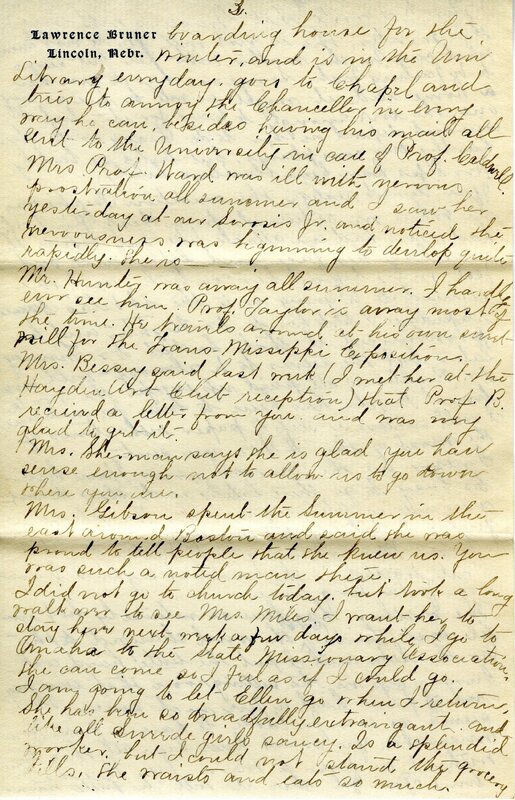 3.
Lawrence Bruner
Lincoln, Nebr.
boarding house for the
winter, and is in the Uni
Library everyday. goes to Chapel and
tries to annoy the Chancellor in every
way he can, besides having his mail all
sent to the University in care of Prof. Caldwell.
Mrs Prof. Ward was ill with nervous
prostration all summer and I saw her
yesterday at our Sorosis Jr. and noticed the
nervousness was beginning to develop quite
rapidly. She is —
Mr. Hunter was away all summer. I hardly
ever see him. Prof. Taylor is away most of
the time. He travels around at his own sweet
will for the Trans-Missippi Exposition.
Mrs. Bessey said last week (I met her at the
Hayden Art Club reception) that Prof B.
received a letter from you and was very
glad to get it.
Mrs. Sherman says she is glad you have
sense enough not to allow us to go down
where you are.
Mrs. Gibson spent the Summer in the
east around Boston and said she was
proud to tell people that she knew us. You
was such a noted man there.
I did not go to church today, but took a long
walk over to see Mrs. Miles. I want her to
stay here next week a few days while I go to
Omaha to the State Missionary Association.
She can come so I feel as if I could go.
I am going to let Ellen go when I return,
she has been so dreadfully extravagant. and
like all Swede girls saucy. Is a splendid
worker, but I could not stand the grocery
bills. She wastes and eats so much.